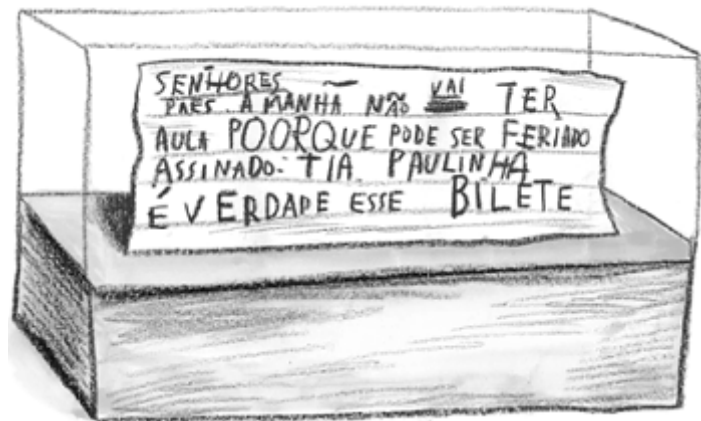 SENHORES
PAES A MANHÃ NÃO VAI TER
AULA POORQUE PODE SER FERIADO
ASSINADO: TIA PAULINHA
É VERDADE ESSE BILETE